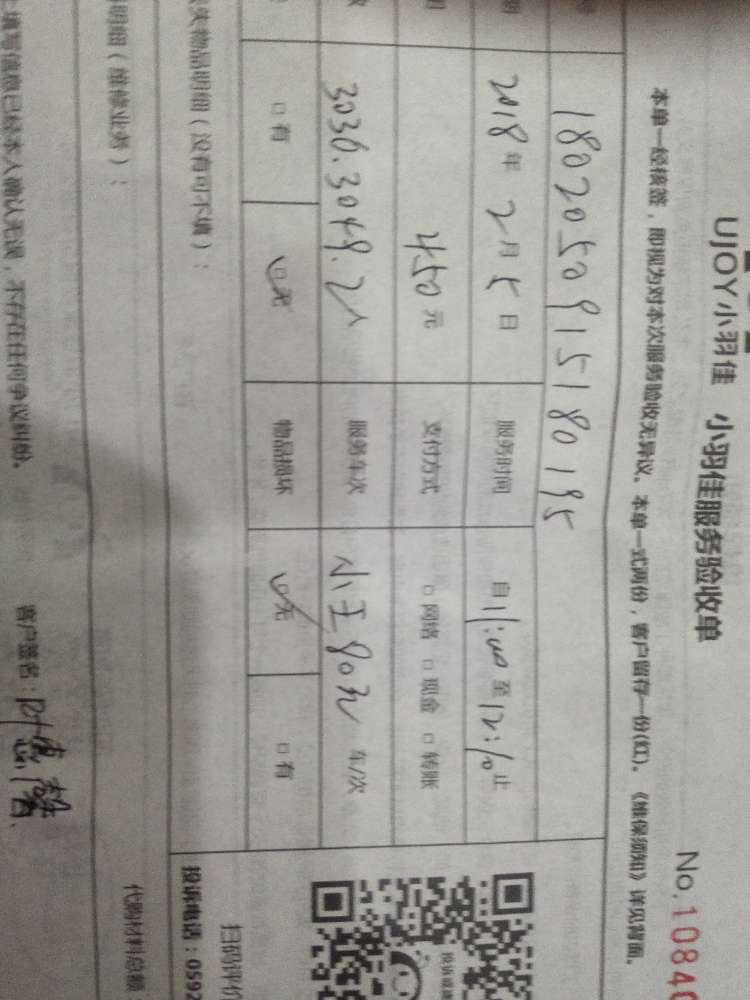 UJOY小羽佳 小羽佳服务验收单
No.10840
本单一经核签，即视为对本次服务验收无异议。本单一式两份，客户留存一份(红)。《维保须知》详见背面。
1802050915180195
2018年 2月5日 服务时间 自11:00至12:10止
450元 支付方式 □网络 □现金 □转账
3036.3049.2人 服务车次 小王80元 车/次
□有 □无 物品损坏 □无 □有
物品明细（没有可不填）：
扫码评价
投诉电话：0592
明细（维修业务）：
代购材料总额
填写信息已经本人确认无误，不存在任何争议纠纷。 客户签名：